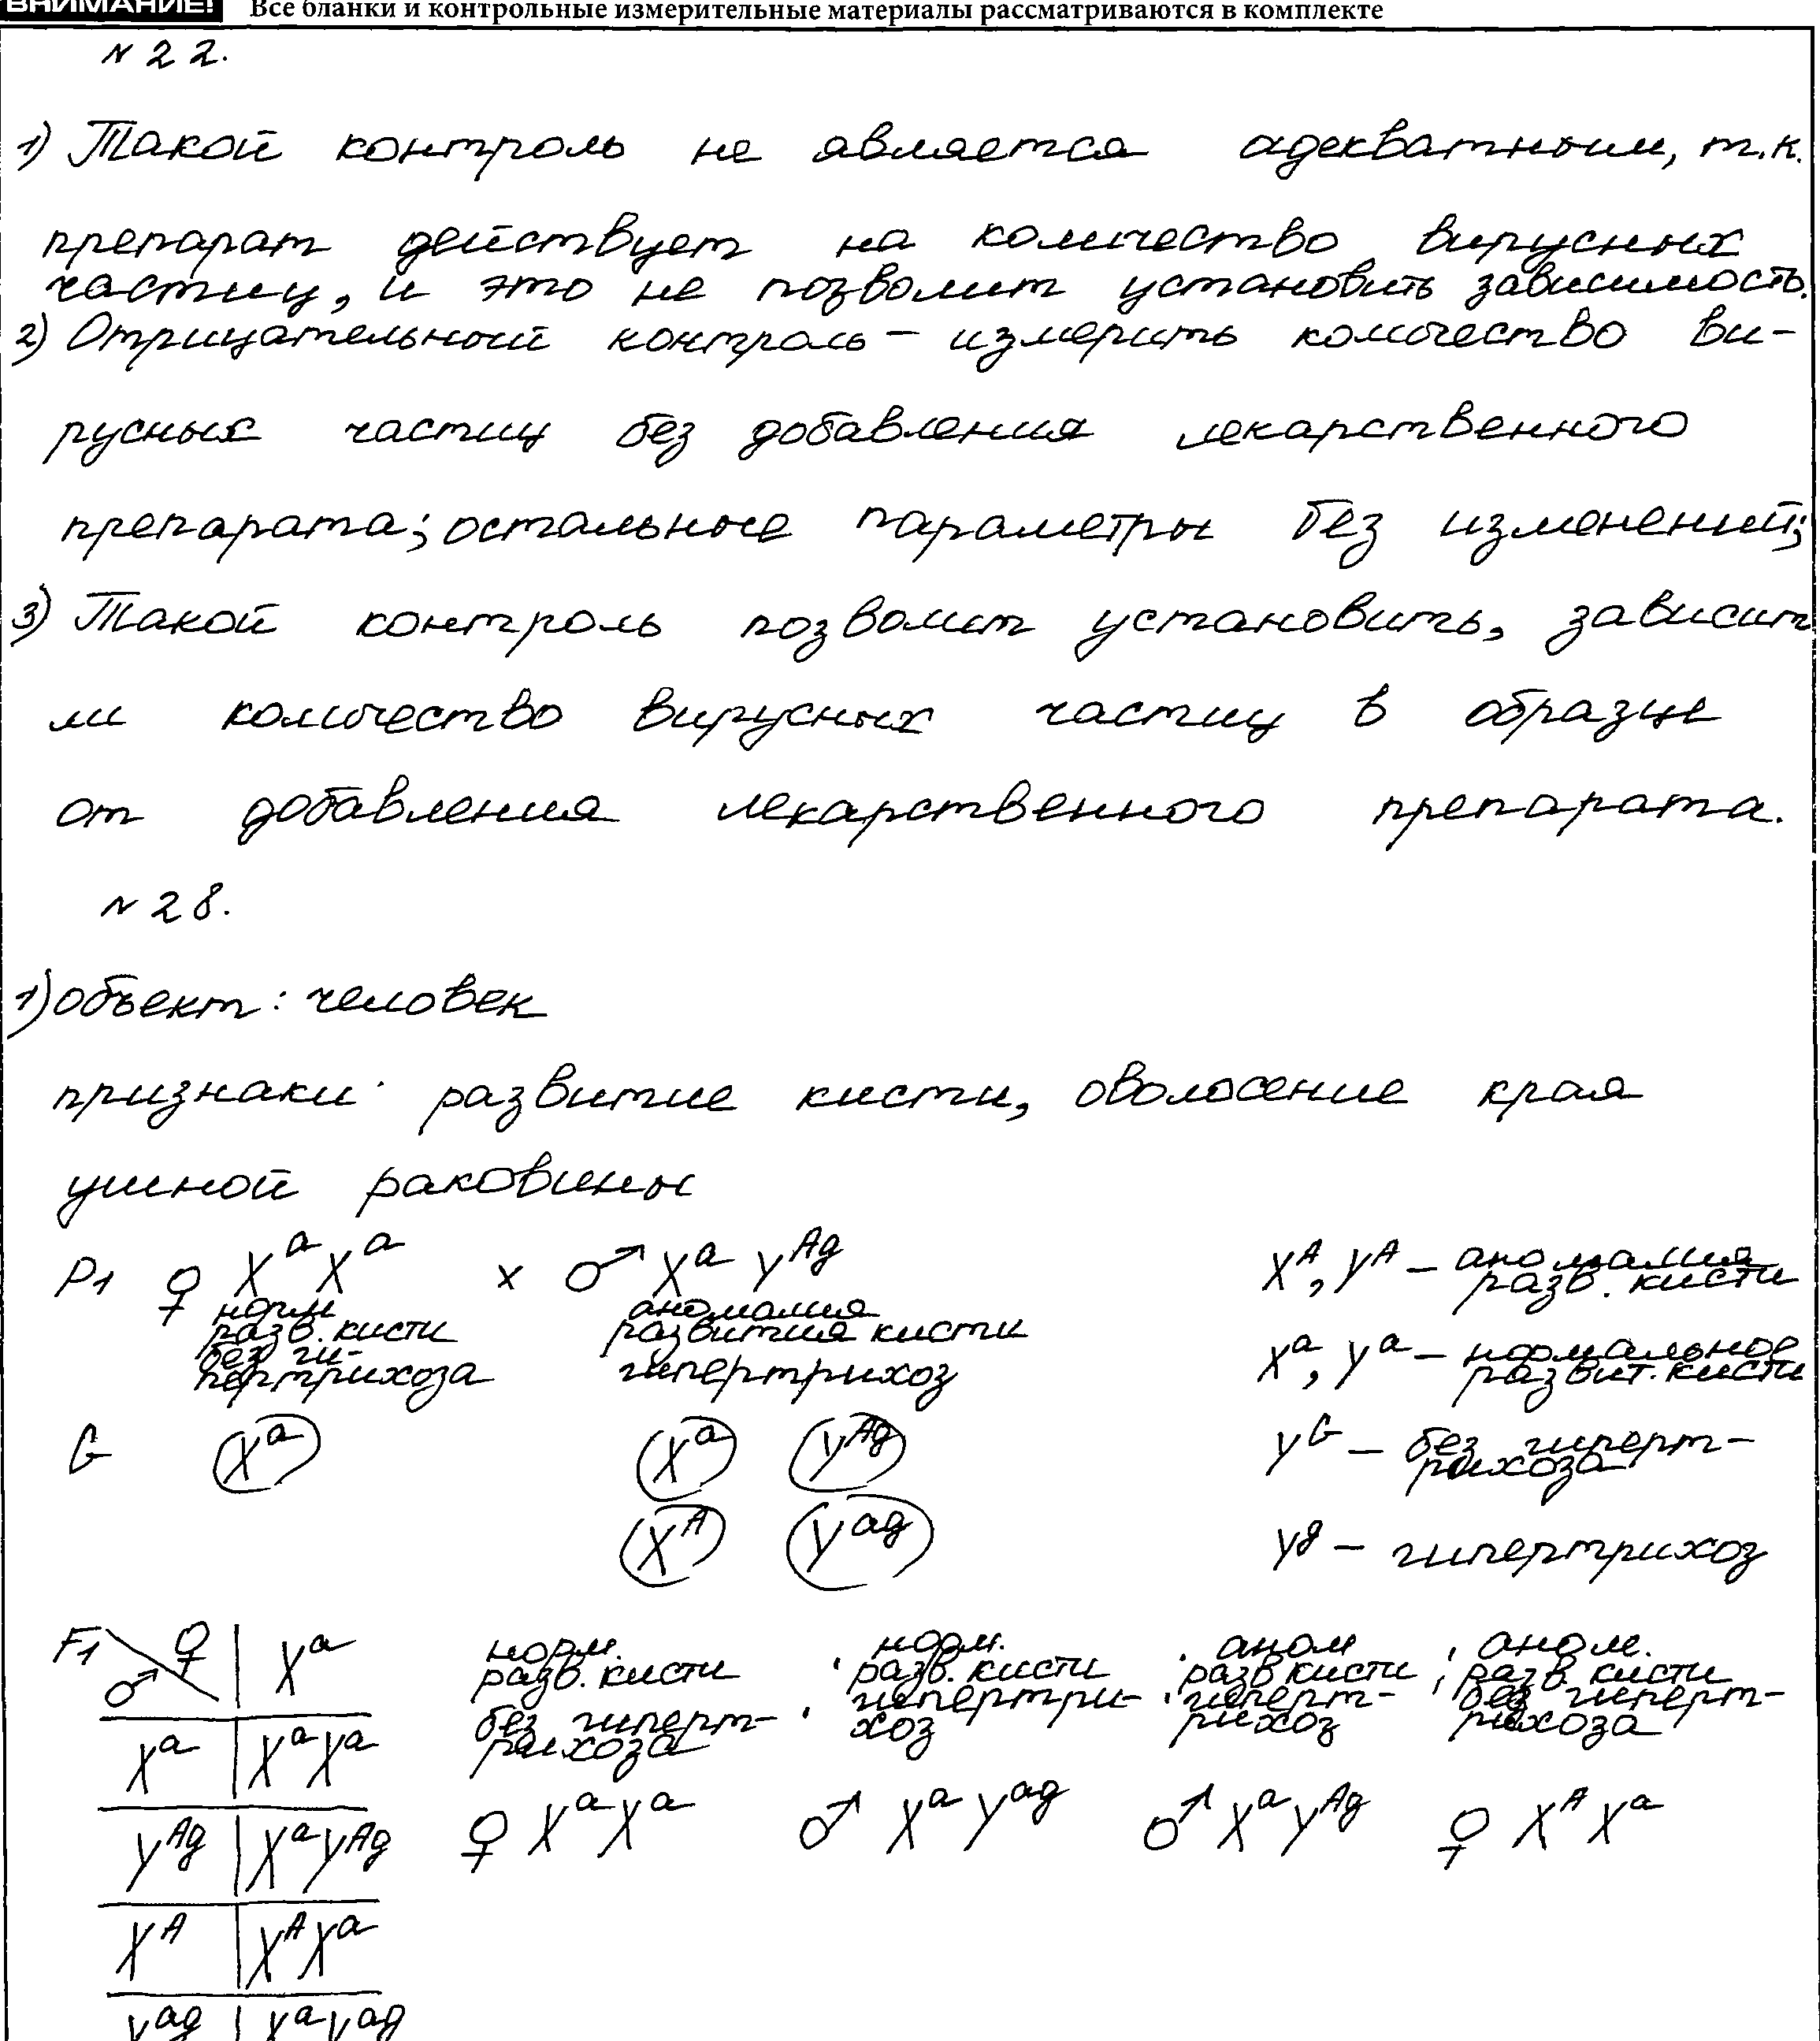 ВНИМАНИЕ! Все бланки и контрольные измерительные материалы рассматриваются в комплекте
N 22.
1) Такой контроль не является адекватным, т.к.
препарат действует на количество вирусных
частиц, и это не позволит установить зависимость.
2) Отрицательный контроль – измерить количество ви-
русных частиц без добавления лекарственного
препарата; остальные параметры без изменений;
3) Такой контроль позволит установить, зависит
ли количество вирусных частиц в образце
от добавления лекарственного препарата.
N 28.
1) объект: человек
признаки: развитие кисти, оволосение края
ушной раковины
P1 ♀ XᵃXᵃ × ♂ Xᵃ Yᴬᵍ
норм разв. кисти без ги-пертрихоза
аномалия развития кисти гипертрихоз
Xᴬ, Yᴬ – аномалия разв. кисти
Xᵃ, Yᵃ – нормальное развит. кисти
G Xᵃ Xᵃ Yᴬᵍ
Yᴳ – без гиперт-рихоза
Xᴬ Yᵃᵍ
Yᵍ – гипертрихоз
F1 ♂ ♀ | Xᵃ
Xᵃ | XᵃXᵃ
Yᴬᵍ | XᵃYᴬᵍ
Xᴬ | XᴬXᵃ
Yᵃᵍ | XᵃYᵃᵍ
норм. разв. кисти без гиперт-рихоза
норм. разв. кисти гипертри-хоз
аном разв кисти гиперт-рихоз
аном. разв. кисти без гиперт-рихоза
♀ XᵃXᵃ ♂ XᵃYᵃᵍ ♂ XᵃYᴬᵍ ♀ XᴬXᵃ